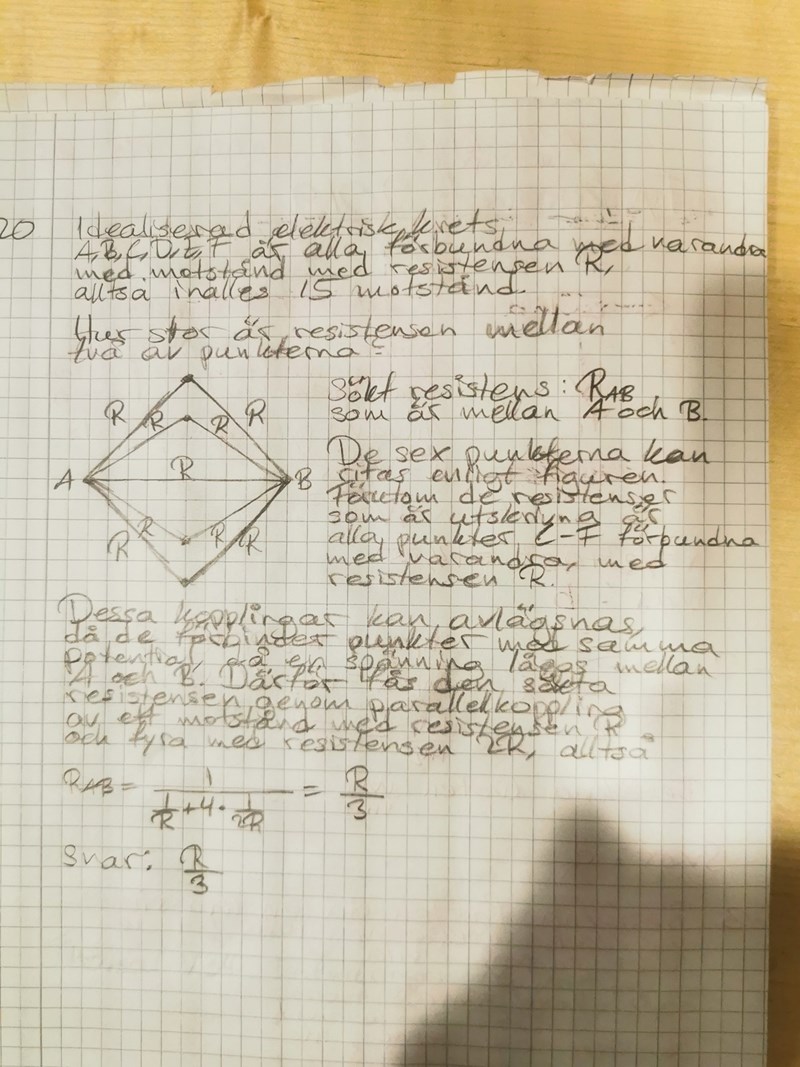 20 Idealiserad elektrisk krets,
A, B, C, D, E, F är alla förbundna med varandra
med motstånd med resistensen R,
alltså inalles 15 motstånd.
Hur stor är resistensen mellan
två av punkterna?
Sökt resistens: R_AB,
som är mellan A och B.
R R R R
A R B
R R R R
De sex punkterna kan
ritas enligt figuren.
Förutom de resistenser
som är utskrivna är
alla punkter C-F förbundna
med varandra, med
resistensen R.
Dessa kopplingar kan avlägsnas,
då de förbinder punkter med samma
potential, då en spänning läggs mellan
A och B. Därför fås den sökta
resistensen genom parallellkoppling
av ett motstånd med resistensen R
och fyra med resistensen 2R, alltså
R_AB = 1/(1/R + 4 · 1/2R) = R/3
Svar: R/3